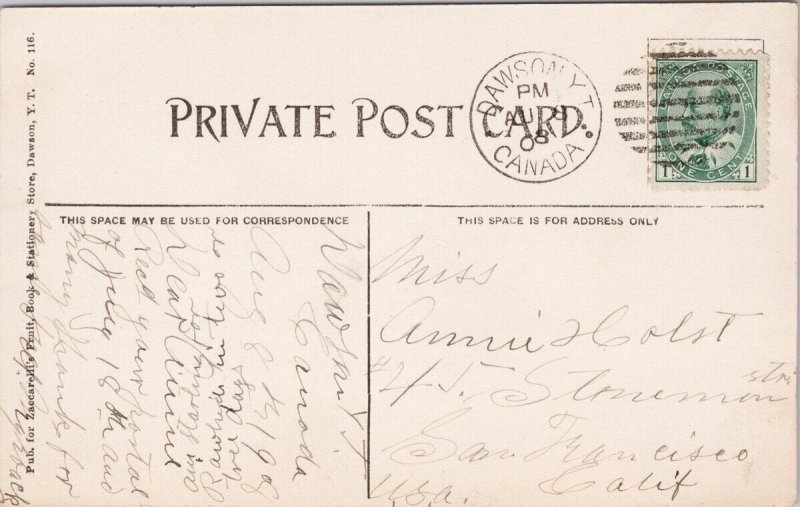 PRIVATE POST CARD.
DAWSON, Y.T.
PM
AU 8
08
CANADA
CANADA POSTAGE
1 ONE CENT 1
THIS SPACE MAY BE USED FOR CORRESPONDENCE
THIS SPACE IS FOR ADDRESS ONLY
Pub. for Zaccarelli's Fruit, Book & Stationery Store, Dawson, Y. T. No. 116.
Dawson Y.T.
Canada
Aug 8 th 1908
Dear Annie
Recd your postal
of July 18th and
many thanks for
Miss
Annie Holst
#45 Stoneman str.
San Francisco
Calif
U.S.a.